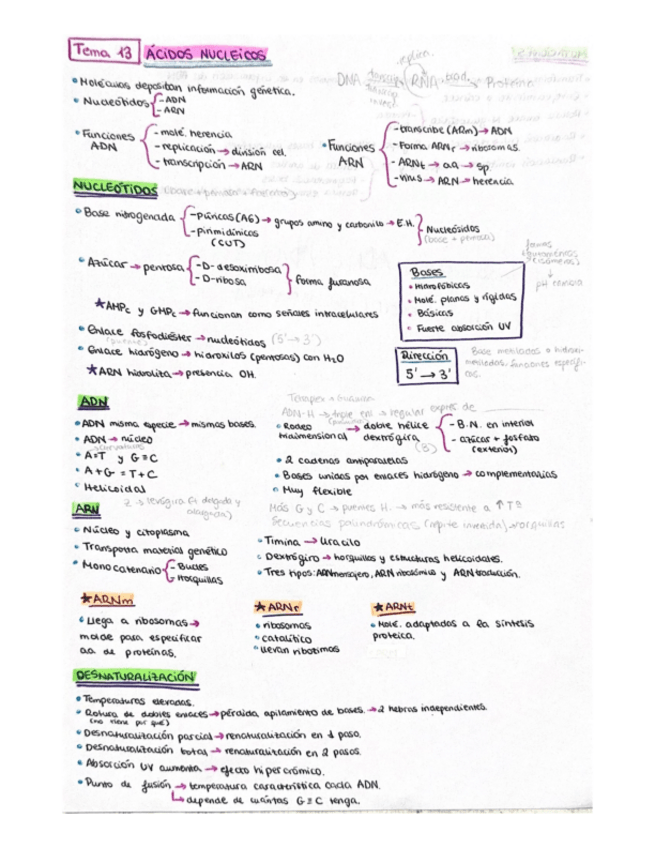 Tema 13 ÁCIDOS NUCLEICOS
replica.
• Moléculas depositan información genética.
DNA RNA trad. Proteína
• Nucleótidos - ADN
- ARN
• Funciones ADN
- molé. herencia
- replicación → división cel.
- transcripción → ARN
• Funciones ARN
- transcribe (ARm) → ADN
- Forma ARNr → ribosomas.
- ARNt → aa → sp.
- virus → ARN → herencia
NUCLEÓTIDOS (base + pentosa + fosfato)
• Base nitrogenada
- Púricas (AG) → grupos amino y carbonilo → E.H.
- pirimidínicas
(CUT)
Nucleósidos
(base + pentosa)
• Azúcar → pentosa
- D-desoxirribosa
- D-ribosa
forma furanosa
formas
tautoméricas
(isómeros)
↓
pH
Bases
• Hidrofóbicas
• Molé. planas y rígidas
• Básicas
• Fuerte absorción UV
★ AMPc y GMPc → funcionan como señales intracelulares
• Enlace fosfodiéster → nucleótidos (5' → 3')
(puente)
• Enlace hidrógeno → hidroxilos (pentosas) con H₂O
★ ARN hidrolita → presencia OH.
Dirección
5' → 3'
Base metiladas o hidroxi-
metiladas: funciones específi-
cas.
ADN
• ADN misma especie → mismas bases.
• ADN → núcleo
• A=T y G≡C
• A+G = T+C
• Helicoidal
Z → levógira (+ delgada y
alargada)
ADN-H → triple enl → regular expres. de
• Rodeo tridimensional → doble hélice dextrógira
(B)
- B.N. en interior
- azúcar + fosfato
(exterior)
• 2 cadenas antiparalelas
• Bases unidas por enlaces hidrógeno → complementarias
• Muy flexible
Más G y C → puentes H. → más resistente a ↑Tª
Secuencias palindrómicas (repite invertida) → horquillas
ARN
• Núcleo y citoplasma
• Transporta material genético
• Monocatenario - Bucles
Horquillas
• Timina → Uracilo
• Dextrógiro → horquillas y estructuras helicoidales.
• Tres tipos: ARN mensajero, ARN ribosómico y ARN traducción.
★ ARNm
• Llega a ribosomas →
molde para especificar
aa de proteínas.
★ ARNr
• ribosomas
• catalítico
• llevan ribotimos
★ ARNt
• Molé. adaptadas a la síntesis
proteica.
DESNATURALIZACIÓN
• Temperaturas elevadas.
• Rotura de dobles enlaces → pérdida apilamiento de bases. → 2 hebras independientes.
(no tiene por qué)
• Desnaturalización parcial → renaturalización en 1 paso.
• Desnaturalización total → renaturalización en 2 pasos.
• Absorción UV aumenta → efecto hipercrómico.
• Punto de fusión → temperatura característica cada ADN.
↳ depende de cuántas G≡C tenga.